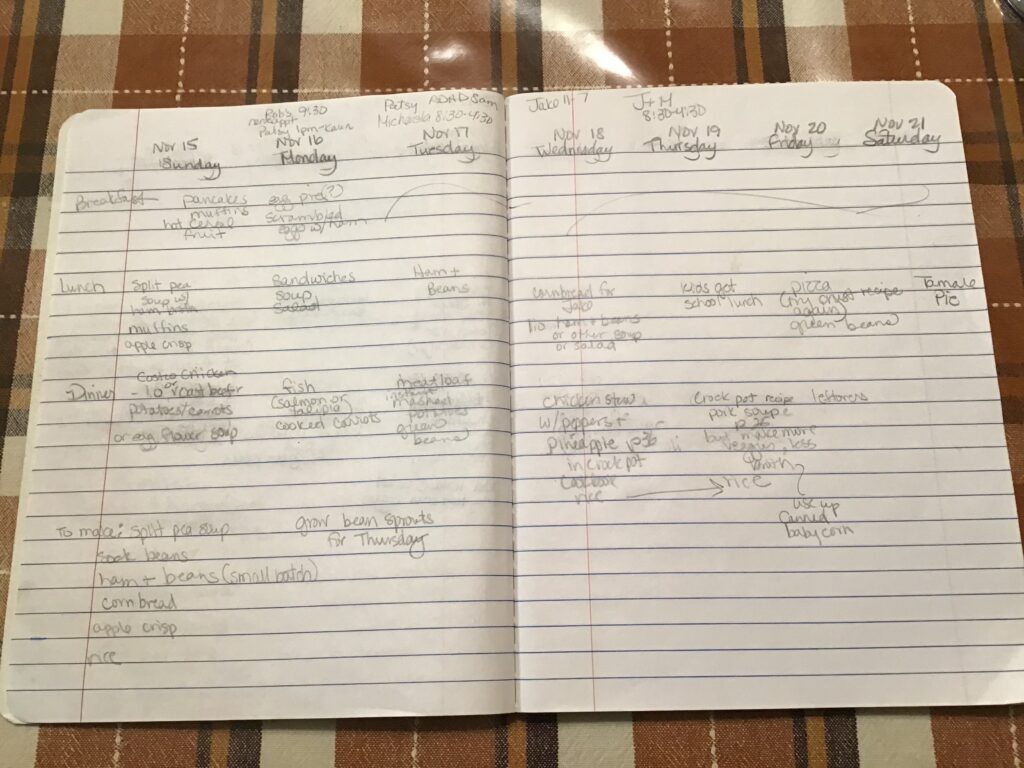 Bobs 9:30
Patsy 1pm-
Patsy Sam
Michaela 8:30-4:30
Jake 11-7
J+M
8:30-4:30
Nov 15
Sunday
Nov 16
Monday
Nov 17
Tuesday
Nov 18
Wednesday
Nov 19
Thursday
Nov 20
Friday
Nov 21
Saturday
Breakfast
pancakes
muffins
hot cereal
fruit
egg pie(?)
scrambled
eggs w/ham
Lunch
split pea
soup w/
ham
muffins
apple crisp
sandwiches
soup
salad
Ham +
Beans
cornbread for
Jake
ham + beans
or other soup
or salad
kids get
school lunch
pizza
(try crust recipe
again)
green beans
Tamale
Pie
Dinner
Costco Chicken
or
roast beef
potatoes/carrots
or egg flower soup
fish
(salmon or
tilapia)
cooked carrots
meatloaf
mashed
potatoes
green
beans
chicken stew
w/peppers +
pineapple p36
in crock pot
cookbook
rice
crock pot recipe
pork soup
p 26
but make more
veggies, less
broth
rice
leftovers
use up
canned
baby corn
To make: split pea soup
soak beans
ham + beans (small batch)
cornbread
apple crisp
rice
grow bean sprouts
for Thursday